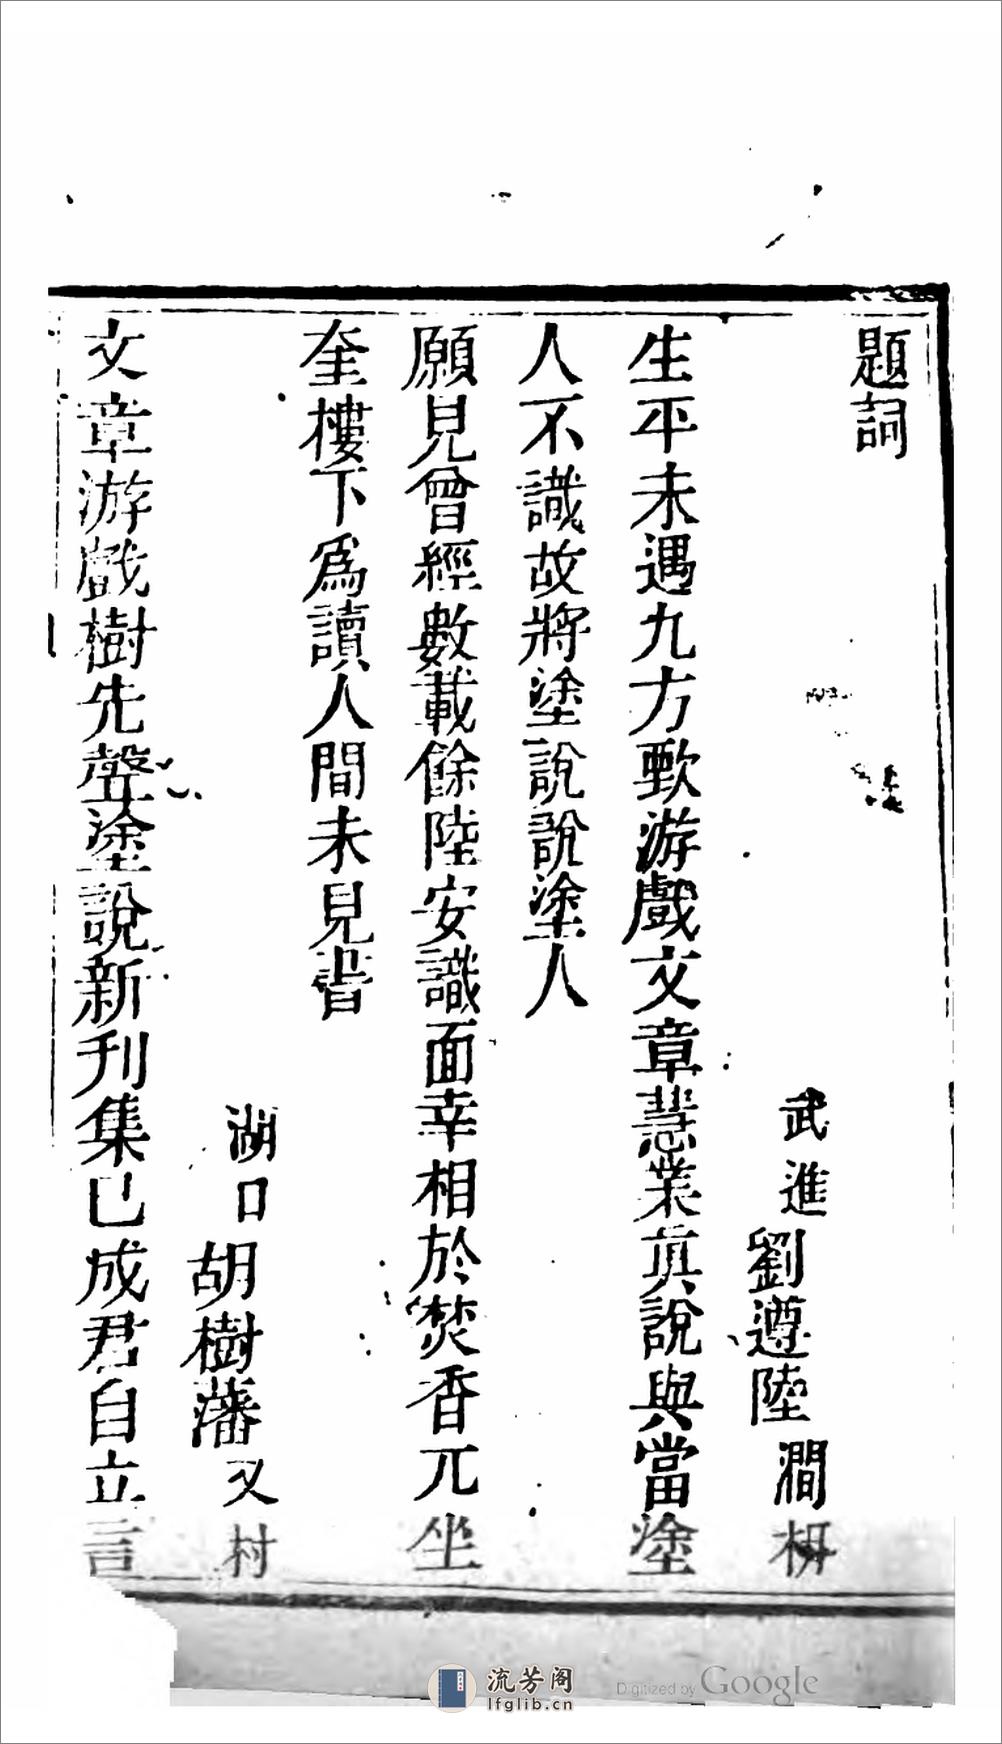 題詞
武進劉遵陸澗枬
生平未遇九方歅游戲文章慧業真說與當塗
人不識故將塗說說塗人
願見曾經數載餘陸安識面幸相於焚香兀坐
奎樓下爲讀人間未見書
湖口胡樹藩又村
文章游戲樹先聲塗說新刊集已成君自立言
流芳阁
lfglib.cn
Digitized by Google